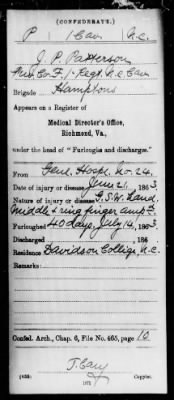 (CONFEDERATE.)
P 1 Cav N.C.
J. P. Patterson
Pvt. Co. F, 1 Regt. N.C. Cav
Brigade Hamptons
Appears on a Register of
Medical Director's Office,
Richmond, Va.,
under the head of "Furloughs and discharges."
From Genl. Hospl. No. 24,
Date of injury or disease June 21, 1863
Nature of injury or disease G.S.W. hand,
middle & ring finger ampt.
Furloughed 40 days, July 14, 1863.
Discharged 186
Residence Davidson College N.C.
Remarks:
Confed. Arch., Chap. 6, File No. 465, page 10
J. Cary
Copyist.